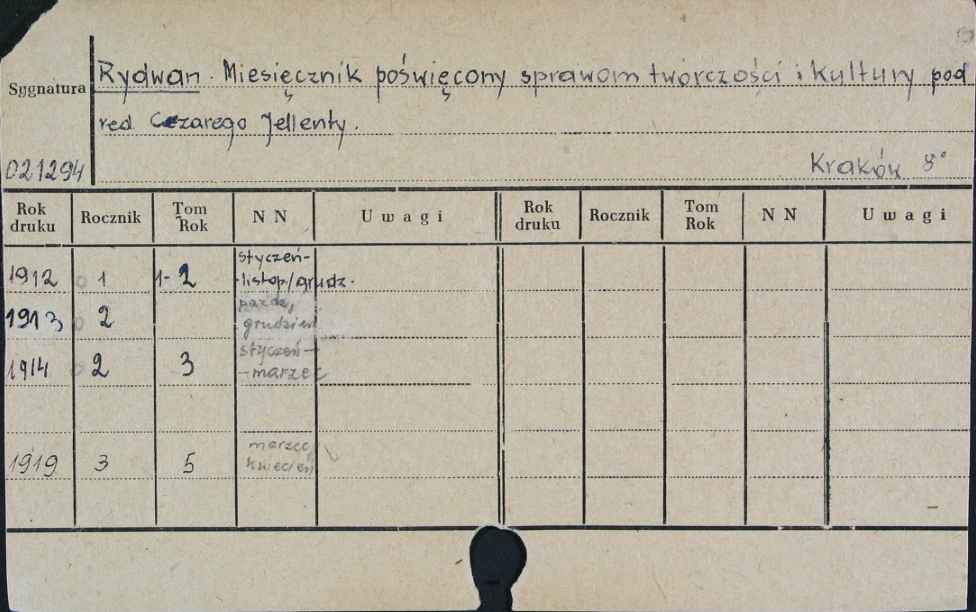 Sygnatura Rydwan. Miesięcznik poświęcony sprawom twórczości i kultury pod
red. Cezarego Jellenty.
021294 Kraków 8°
Rok druku Rocznik Tom Rok N N Uwagi Rok druku Rocznik Tom Rok N N Uwagi
1912 1 1-2 styczeń-
-listop/grudz.
1913 2 paźdz,
grudzień
1914 2 3 styczeń-
-marzec
1919 3 5 marzec,
kwiecień